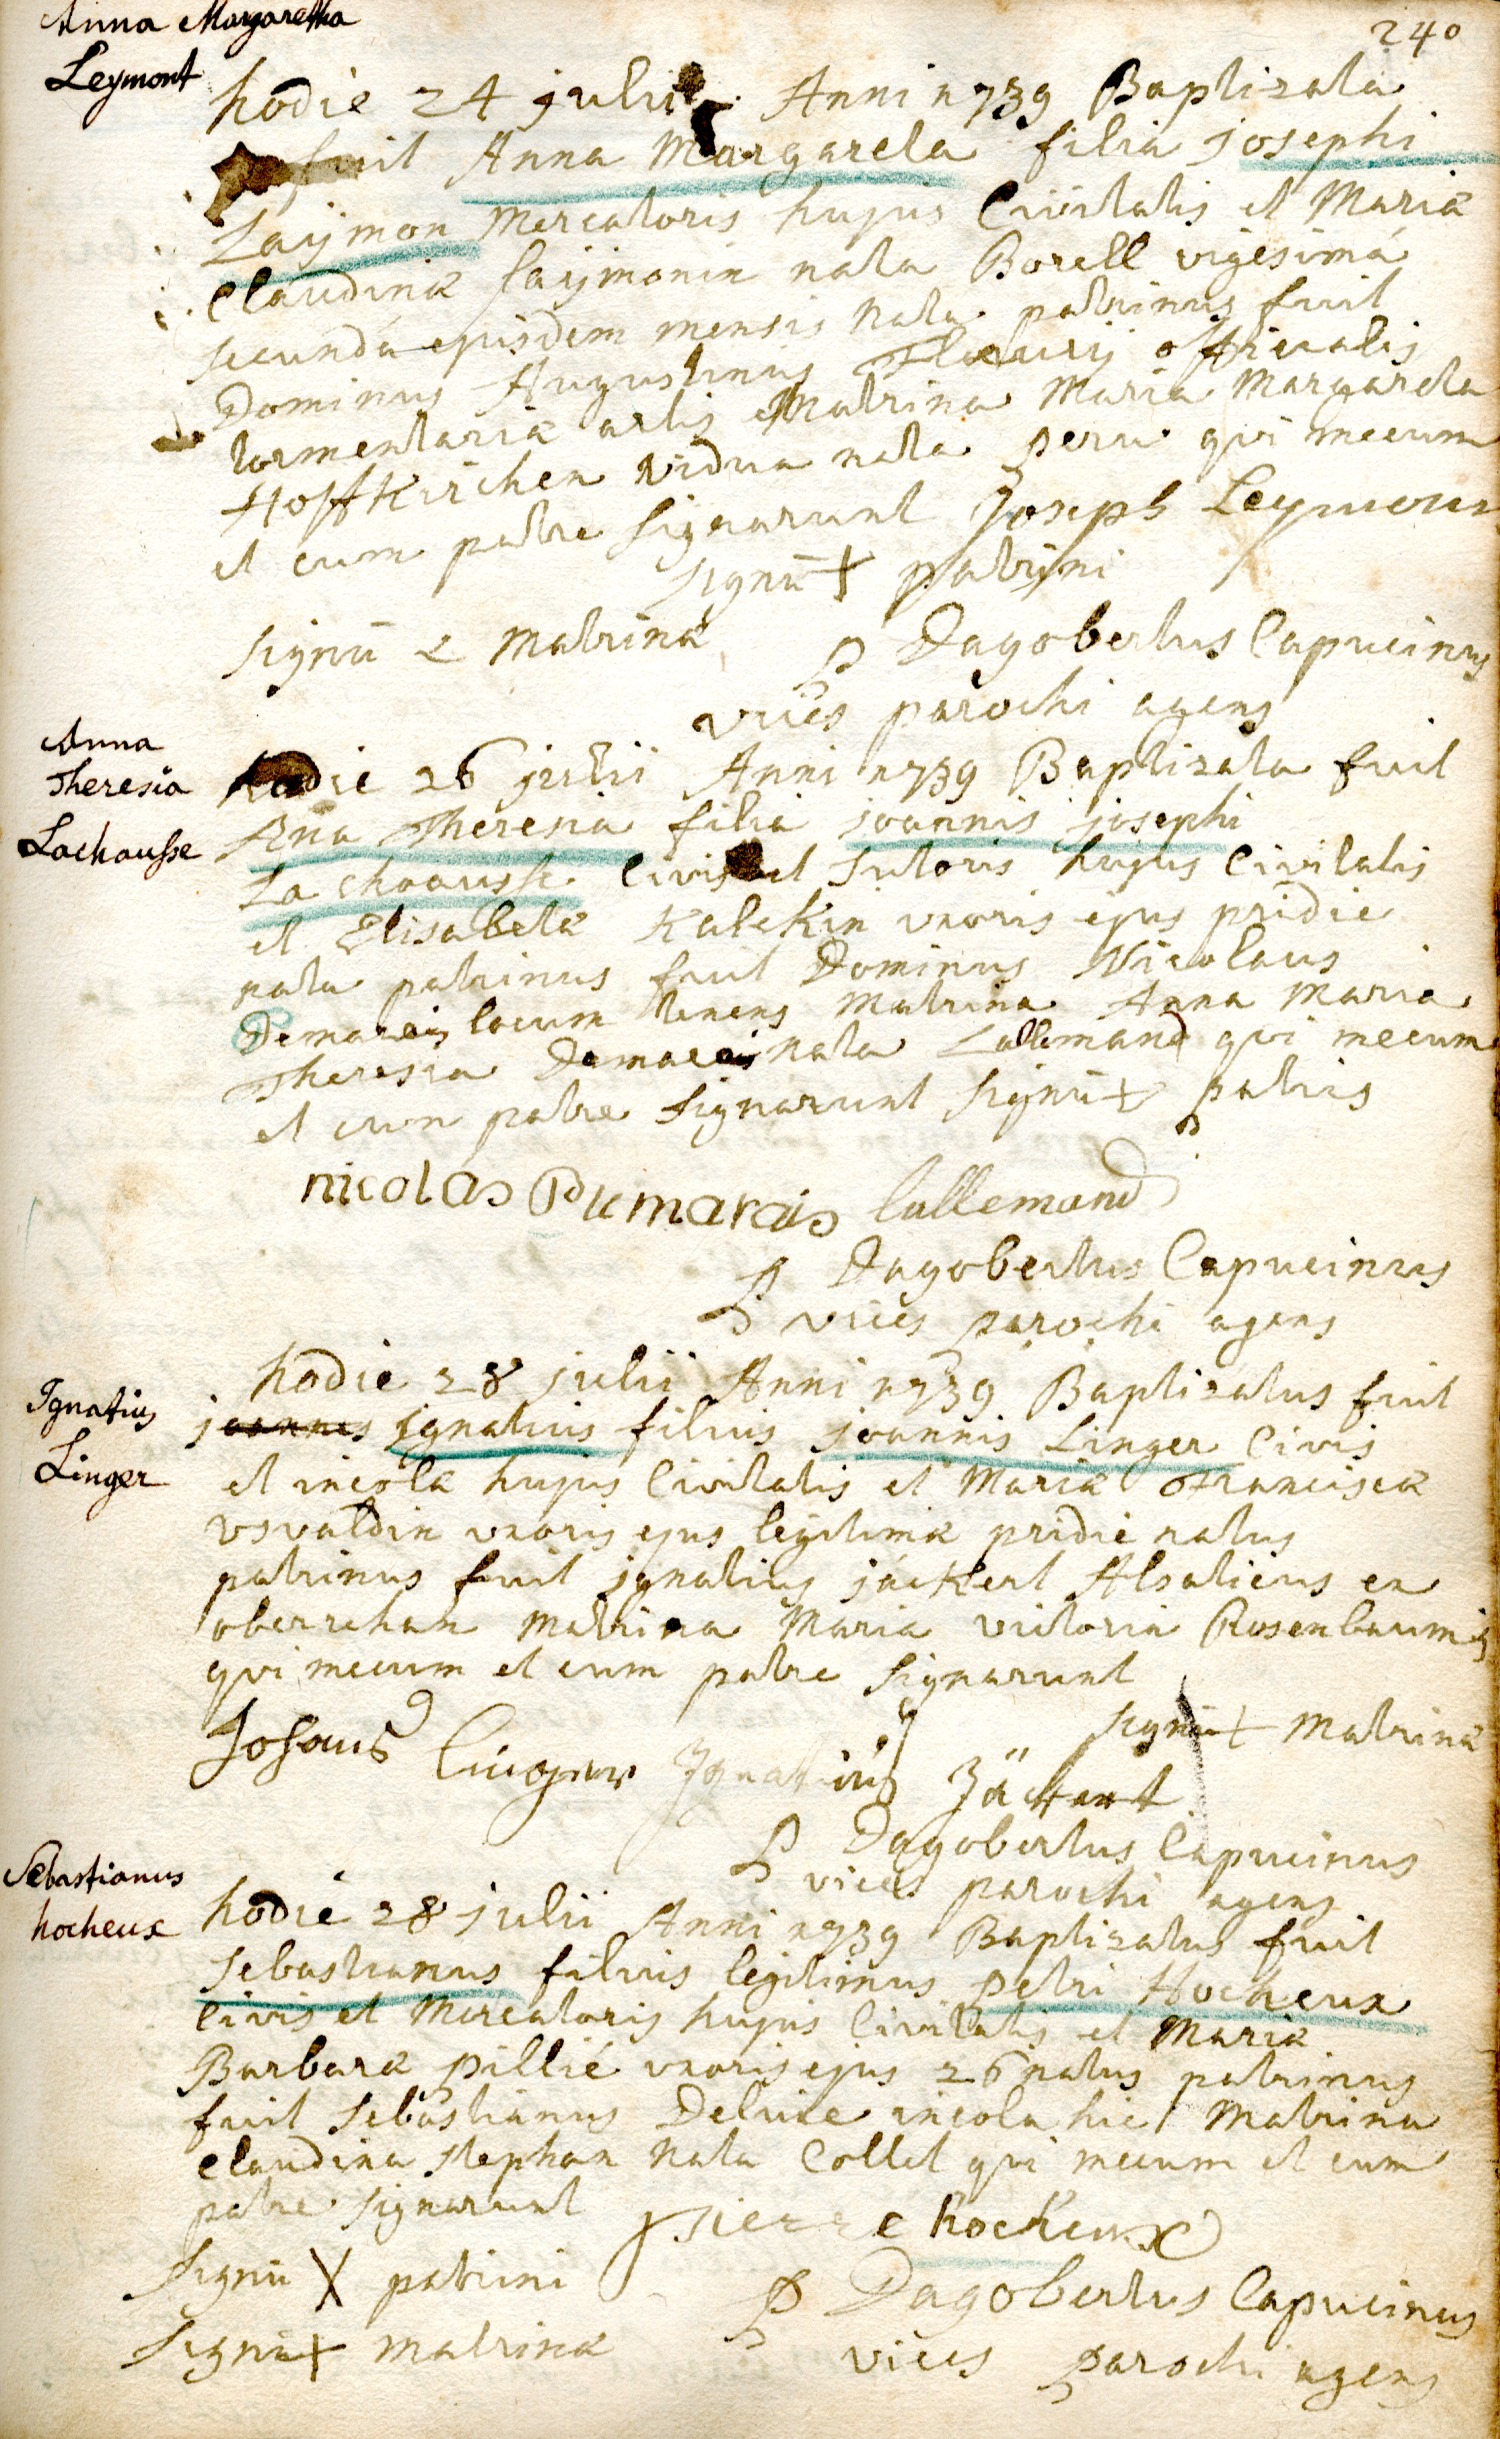 240
Anna Margaretha
Leymont
hodie 24 julii Anni 1739 Baptizata
fuit Anna Margareta filia josephi
Laymon Mercatoris hujus Civitatis et Mariæ
Claudinæ Laymonin nata Borell vigesimá
secundá ejusdem mensis nata patrinus fuit
Dominus Augustinus Fleurij officialis
tormentariæ artis Matrina Maria Margareta
Hoffkirchen vidua nata peru qui mecum
et cum patre signarunt Joseph Leymont
signū + patrini
signū Matrinæ
P Dagobertus Capucinus
vices parochi agens
Anna
Theresia
Lachausse
hodie 26 julii Anni 1739 Baptizata fuit
Aña Theresia filia joannis josephi
La chaousse Civis et sutoris hujus Civitatis
et Elisabetæ Kalckin uxoris ejus pridie
nata patrinus fuit Dominus Nicolaus
Demarais locum tenens Matrina Anna Maria
Theresia Demarais nata Lallemand qui mecum
et cum patre signarunt signū + patris
nicolas Dumarais lallemand
P Dagobertus Capucinus
vices parochi agens
Ignatius
Linger
hodie 28 julii Anni 1739 Baptizatus fuit
joannes jgnatius filius joannis Linger Civis
et incolæ hujus Civitatis et Mariæ Franciscæ
vsvaldin uxoris ejus legitimæ pridie natus
patrinus fuit jgnatius jáckert Alsaticus ex
oberrehan Matrina Maria victoria Rosenbaumin
qui mecum et cum patre signarunt
signū + Matrinæ
Johans Linger Ignatius Jäckert
P Dagobertus Capucinus
vices parochi agens
Sebastianus
hocheux
hodie 28 julii Anni 1739 Baptizatus fuit
Sebastianus filius legitimus petri Hocheux
Civis et Mercatoris hujus Civitatis et Mariæ
Barbaræ pillié uxoris ejus 26 natus patrinus
fuit Sebastianus Deluce incola hic Matrina
Claudina stephan nata Collet qui mecum et cum
patre signarunt pierre hocheux
signū X patrini
P Dagobertus Capucinus
signū + matrinæ
vices parochi agens